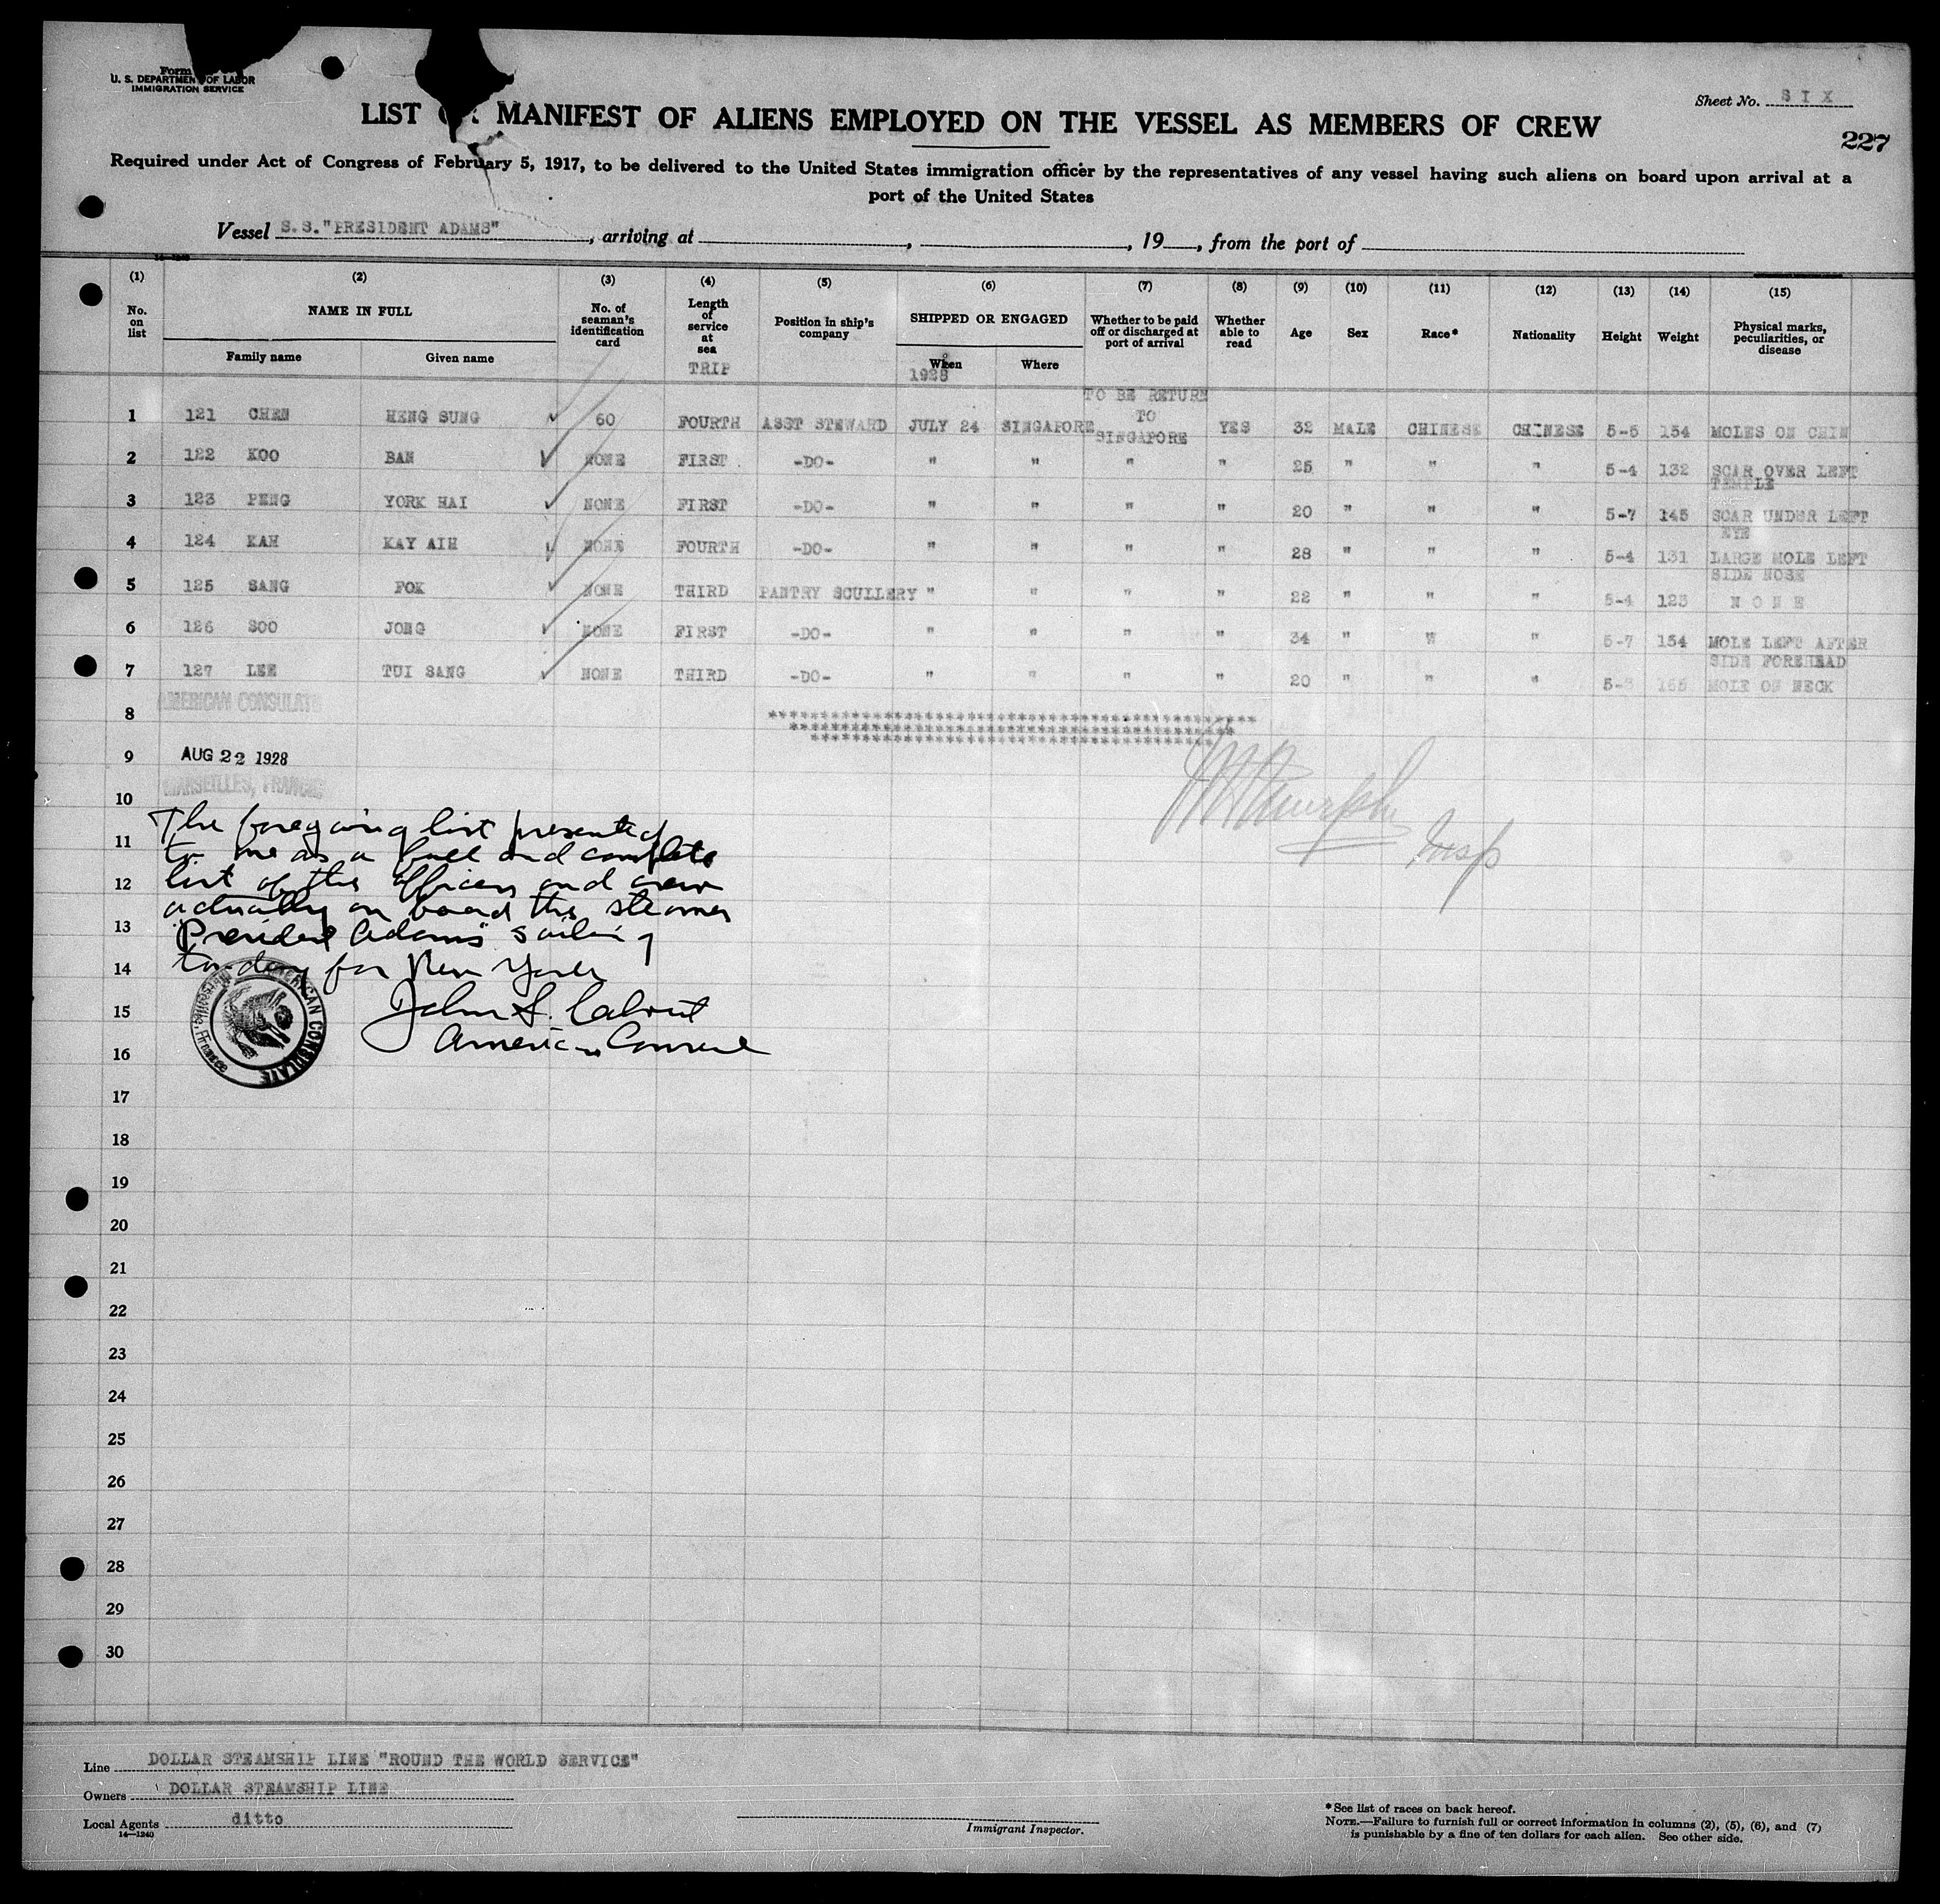 Form
U. S. DEPARTMENT OF LABOR
IMMIGRATION SERVICE
Sheet No. SIX
LIST OR MANIFEST OF ALIENS EMPLOYED ON THE VESSEL AS MEMBERS OF CREW
227
Required under Act of Congress of February 5, 1917, to be delivered to the United States immigration officer by the representatives of any vessel having such aliens on board upon arrival at a
port of the United States
Vessel S.S."PRESIDENT ADAMS", arriving at , , 19 , from the port of
(1) (2) (3) (4) (5) (6) (7) (8) (9) (10) (11) (12) (13) (14) (15)
No. on list NAME IN FULL No. of seaman's identification card Length of service at sea Position in ship's company SHIPPED OR ENGAGED Whether to be paid off or discharged at port of arrival Whether able to read Age Sex Race* Nationality Height Weight Physical marks, peculiarities, or disease
Family name Given name When Where
TRIP 1928
1 121 CHEN HENG SUNG 60 FOURTH ASST STEWARD JULY 24 SINGAPORE TO BE RETURN TO SINGAPORE YES 32 MALE CHINESE CHINESE 5-5 154 MOLES ON CHIN
2 122 KOO BAN NONE FIRST -DO- " " " " 25 " " " 5-4 132 SCAR OVER LEFT TEMPLE
3 123 PENG YORK HAI NONE FIRST -DO- " " " " 20 " " " 5-7 145 SCAR UNDER LEFT EYE
4 124 KAH KAY AIH NONE FOURTH -DO- " " " " 28 " " " 5-4 131 LARGE MOLE LEFT SIDE NOSE
5 125 SANG FOK NONE THIRD PANTRY SCULLERY " " " " 22 " " " 5-4 123 NONE
6 126 SOO JONG NONE FIRST -DO- " " " " 34 " " " 5-7 154 MOLE LEFT AFTER SIDE FOREHEAD
7 127 LEE TUI SANG NONE THIRD -DO- " " " " 20 " " " 5- MOLE ON NECK
AMERICAN CONSULATE
8
9 AUG 22 1928
MARSEILLES, FRANCE
10
The foregoing list presented
11
to me as a full and complete
12
list of the officers and crew
actually on board the steamer
13
"President Adams" sailing
14
to-day for New York
15
John S. Calvert
American Consul
AMERICAN CONSULATE
Marseilles, France
Murphy
Insp
16
17
18
19
20
21
22
23
24
25
26
27
28
29
30
Line DOLLAR STEAMSHIP LINE "ROUND THE WORLD SERVICE"
Owners DOLLAR STEAMSHIP LINE
Local Agents ditto
14—1240
Immigrant Inspector.
*See list of races on back hereof.
NOTE.—Failure to furnish full or correct information in columns (2), (5), (6), and (7)
is punishable by a fine of ten dollars for each alien. See other side.